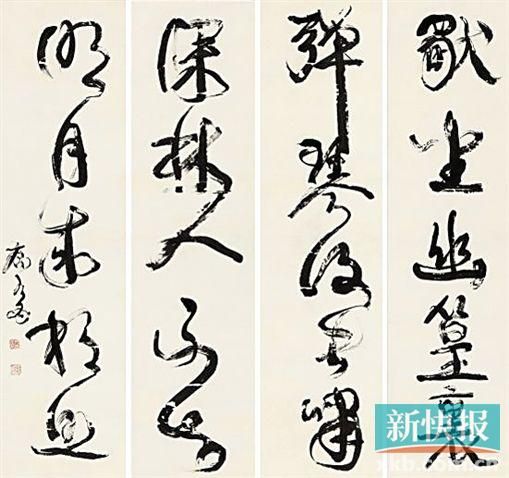 獨坐幽篁裏
彈琴復長嘯
深林人不知
明月來相照
新快报
xkb.com.cn